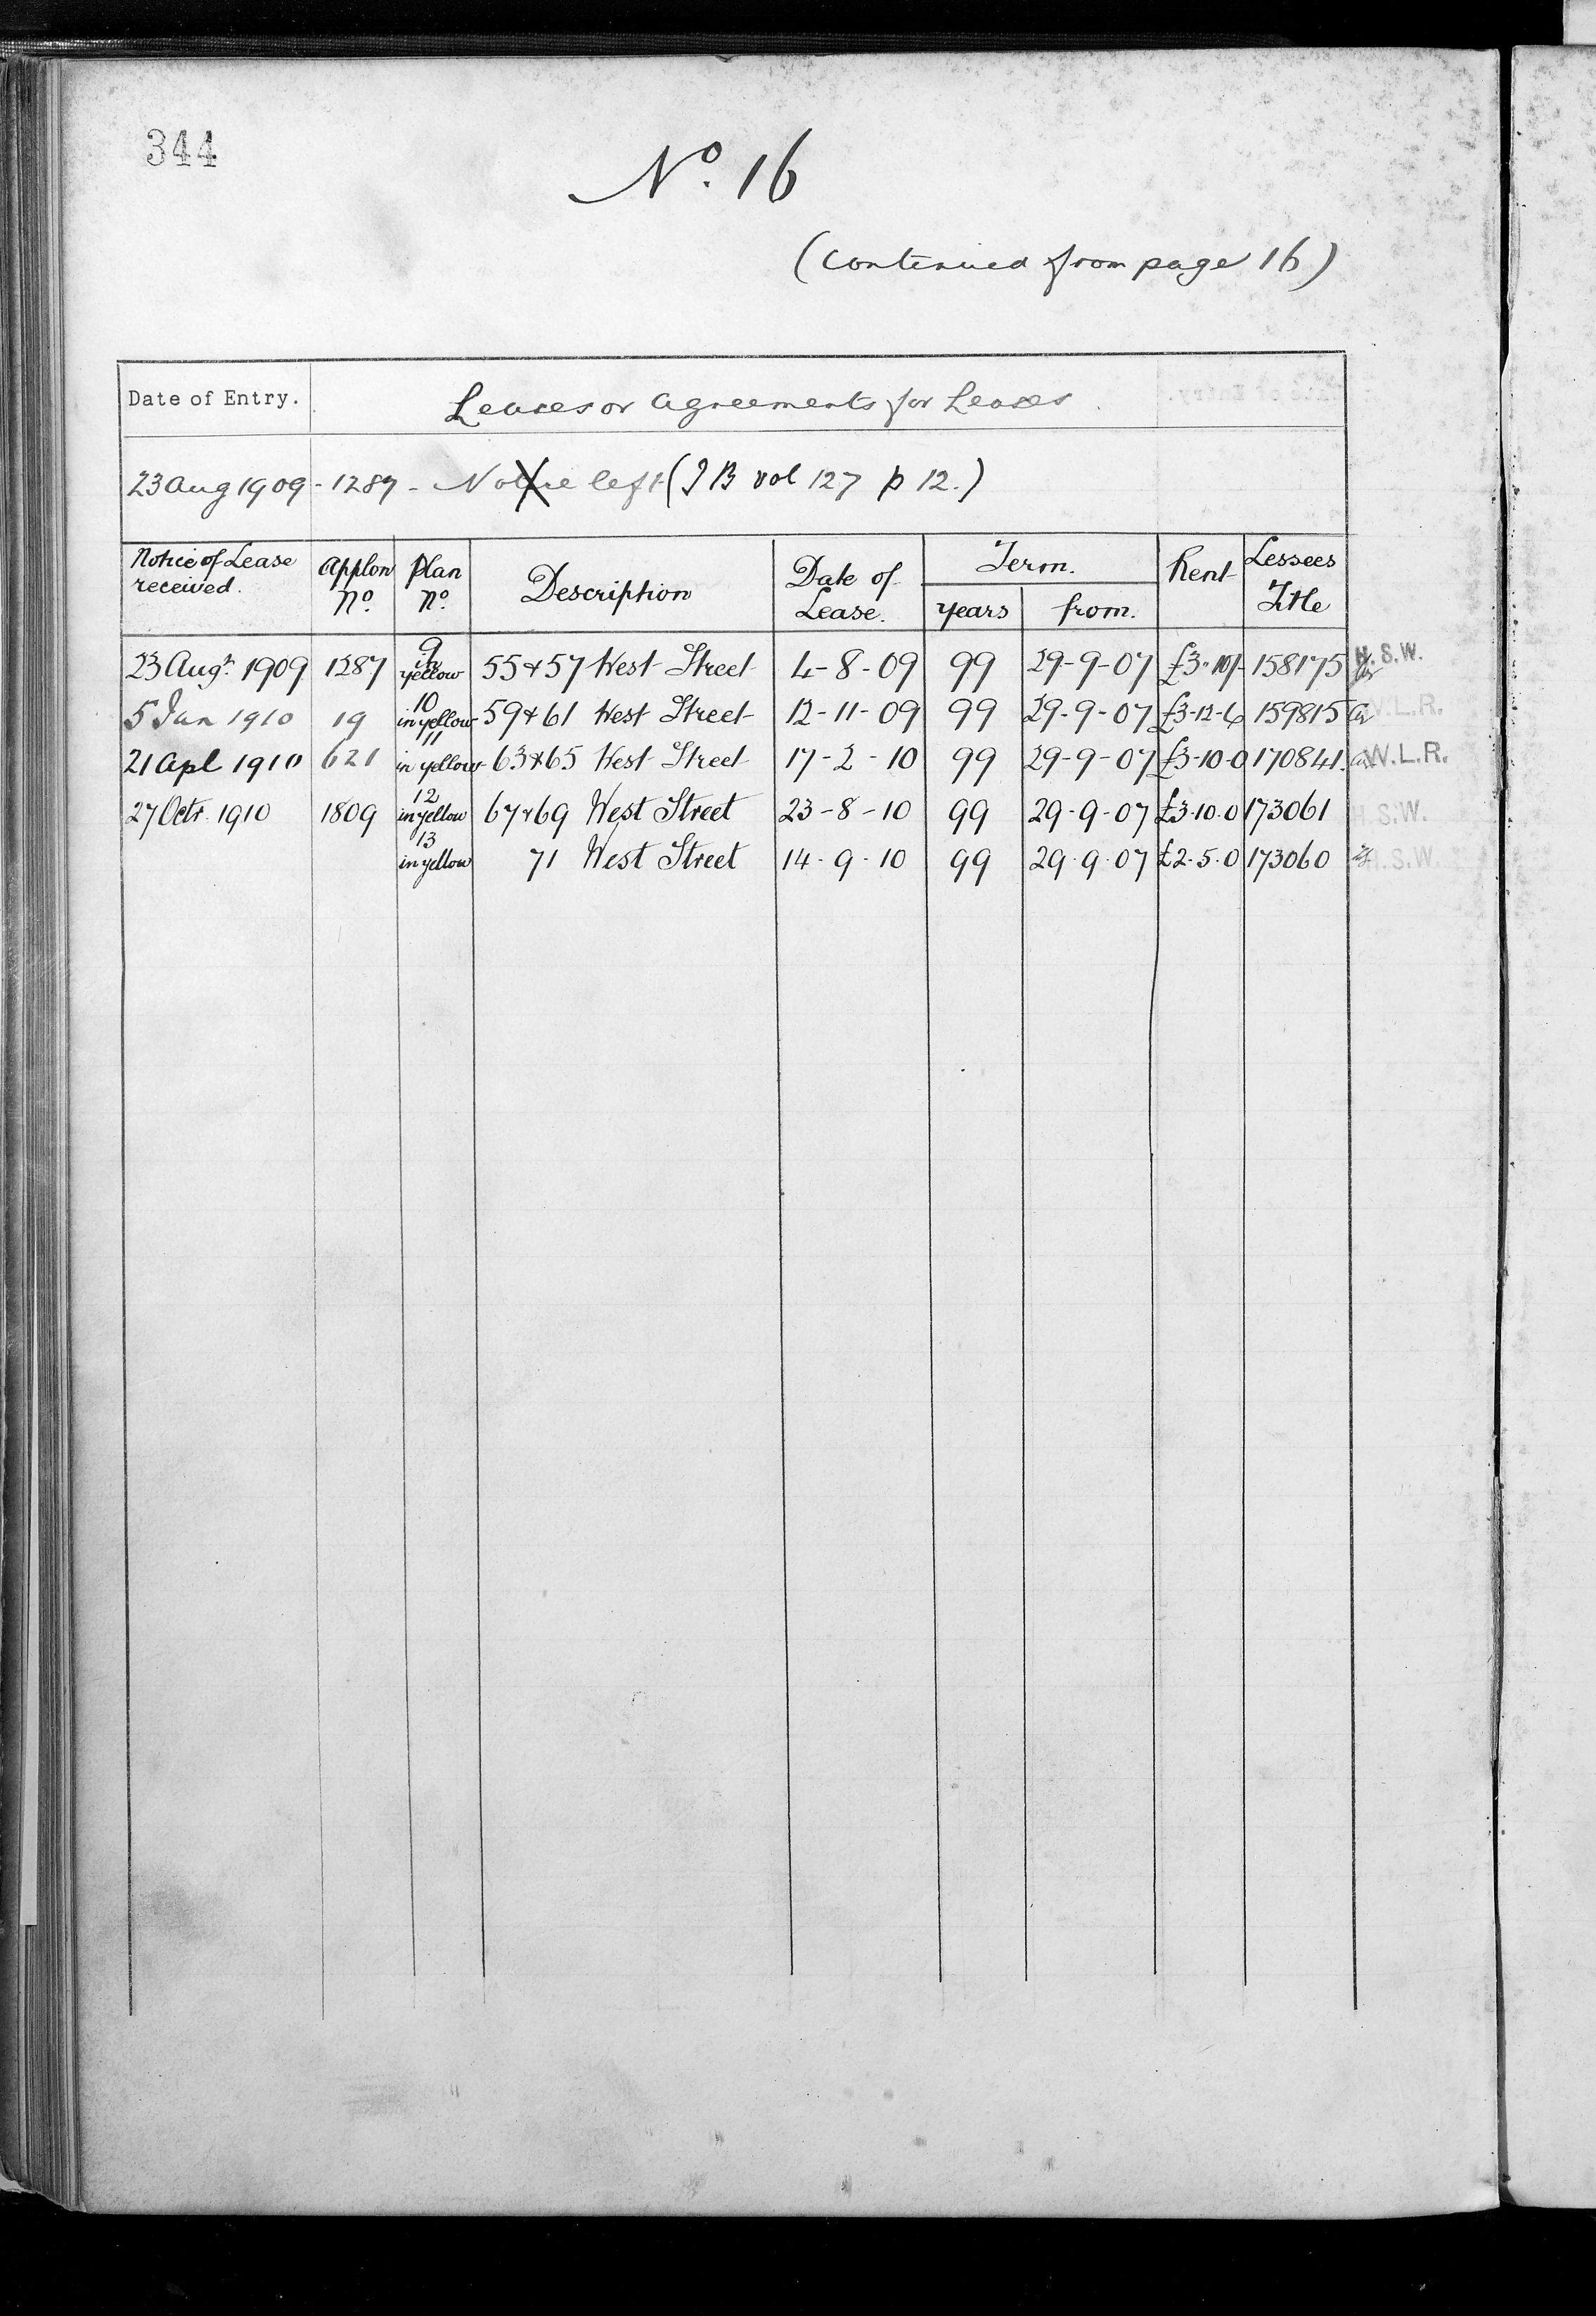 344
No. 16
(continued from page 16)
Date of Entry. Leases or Agreements for Leases.
23 Aug 1909 - 1287 - Notice left (I B vol 127 p 12.)
Notice of Lease received. Applon No. Plan No. Description Date of Lease. Term. years from. Rent Lessees Title
23 Augt. 1909 1287 9 in yellow 55 & 57 West Street 4-8-09 99 29-9-07 £3-10/- 158175 H.S.W.
5 Jan 1910 19 10 in yellow 59 & 61 West Street 12-11-09 99 29-9-07 £3-12-6 159815 W.L.R.
21 Apl 1910 621 11 in yellow 63 & 65 West Street 17-2-10 99 29-9-07 £3-10-0 170841. W.L.R.
27 Octr. 1910 1809 12 in yellow 67 & 69 West Street 23-8-10 99 29-9-07 £3.10.0 173061 H.S.W.
13 in yellow 71 West Street 14-9-10 99 29.9.07 £2.5.0 173060 H.S.W.